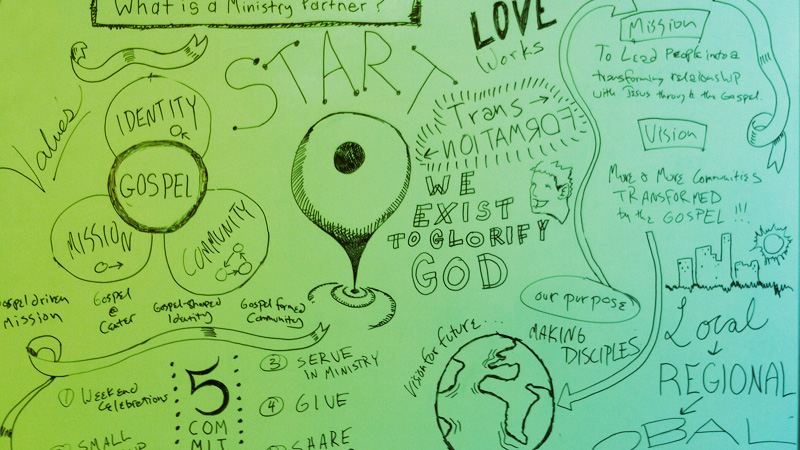 What is a Ministry Partner?
LOVE
Works
START
Values
IDENTITY
GOSPEL
MISSION
COMMUNITY
Gospel driven
Mission
Gospel
@
Center
Gospel-Shaped
Identity
Gospel formed
Community
Trans
FORMATION
WE
EXIST
TO GLORIFY
GOD
Mission
To Lead People into a
transforming relationship
with Jesus through the Gospel.
Vision
More & More Communities
TRANSFORMED
by the GOSPEL!!!
our purpose
MAKING
DISCIPLES
Vision for future...
Local
REGIONAL
OBAL
① Weekend
Celebrations
SMALL
5
COM
MIT
③ SERVE
IN MINISTRY
④ GIVE
SHARE